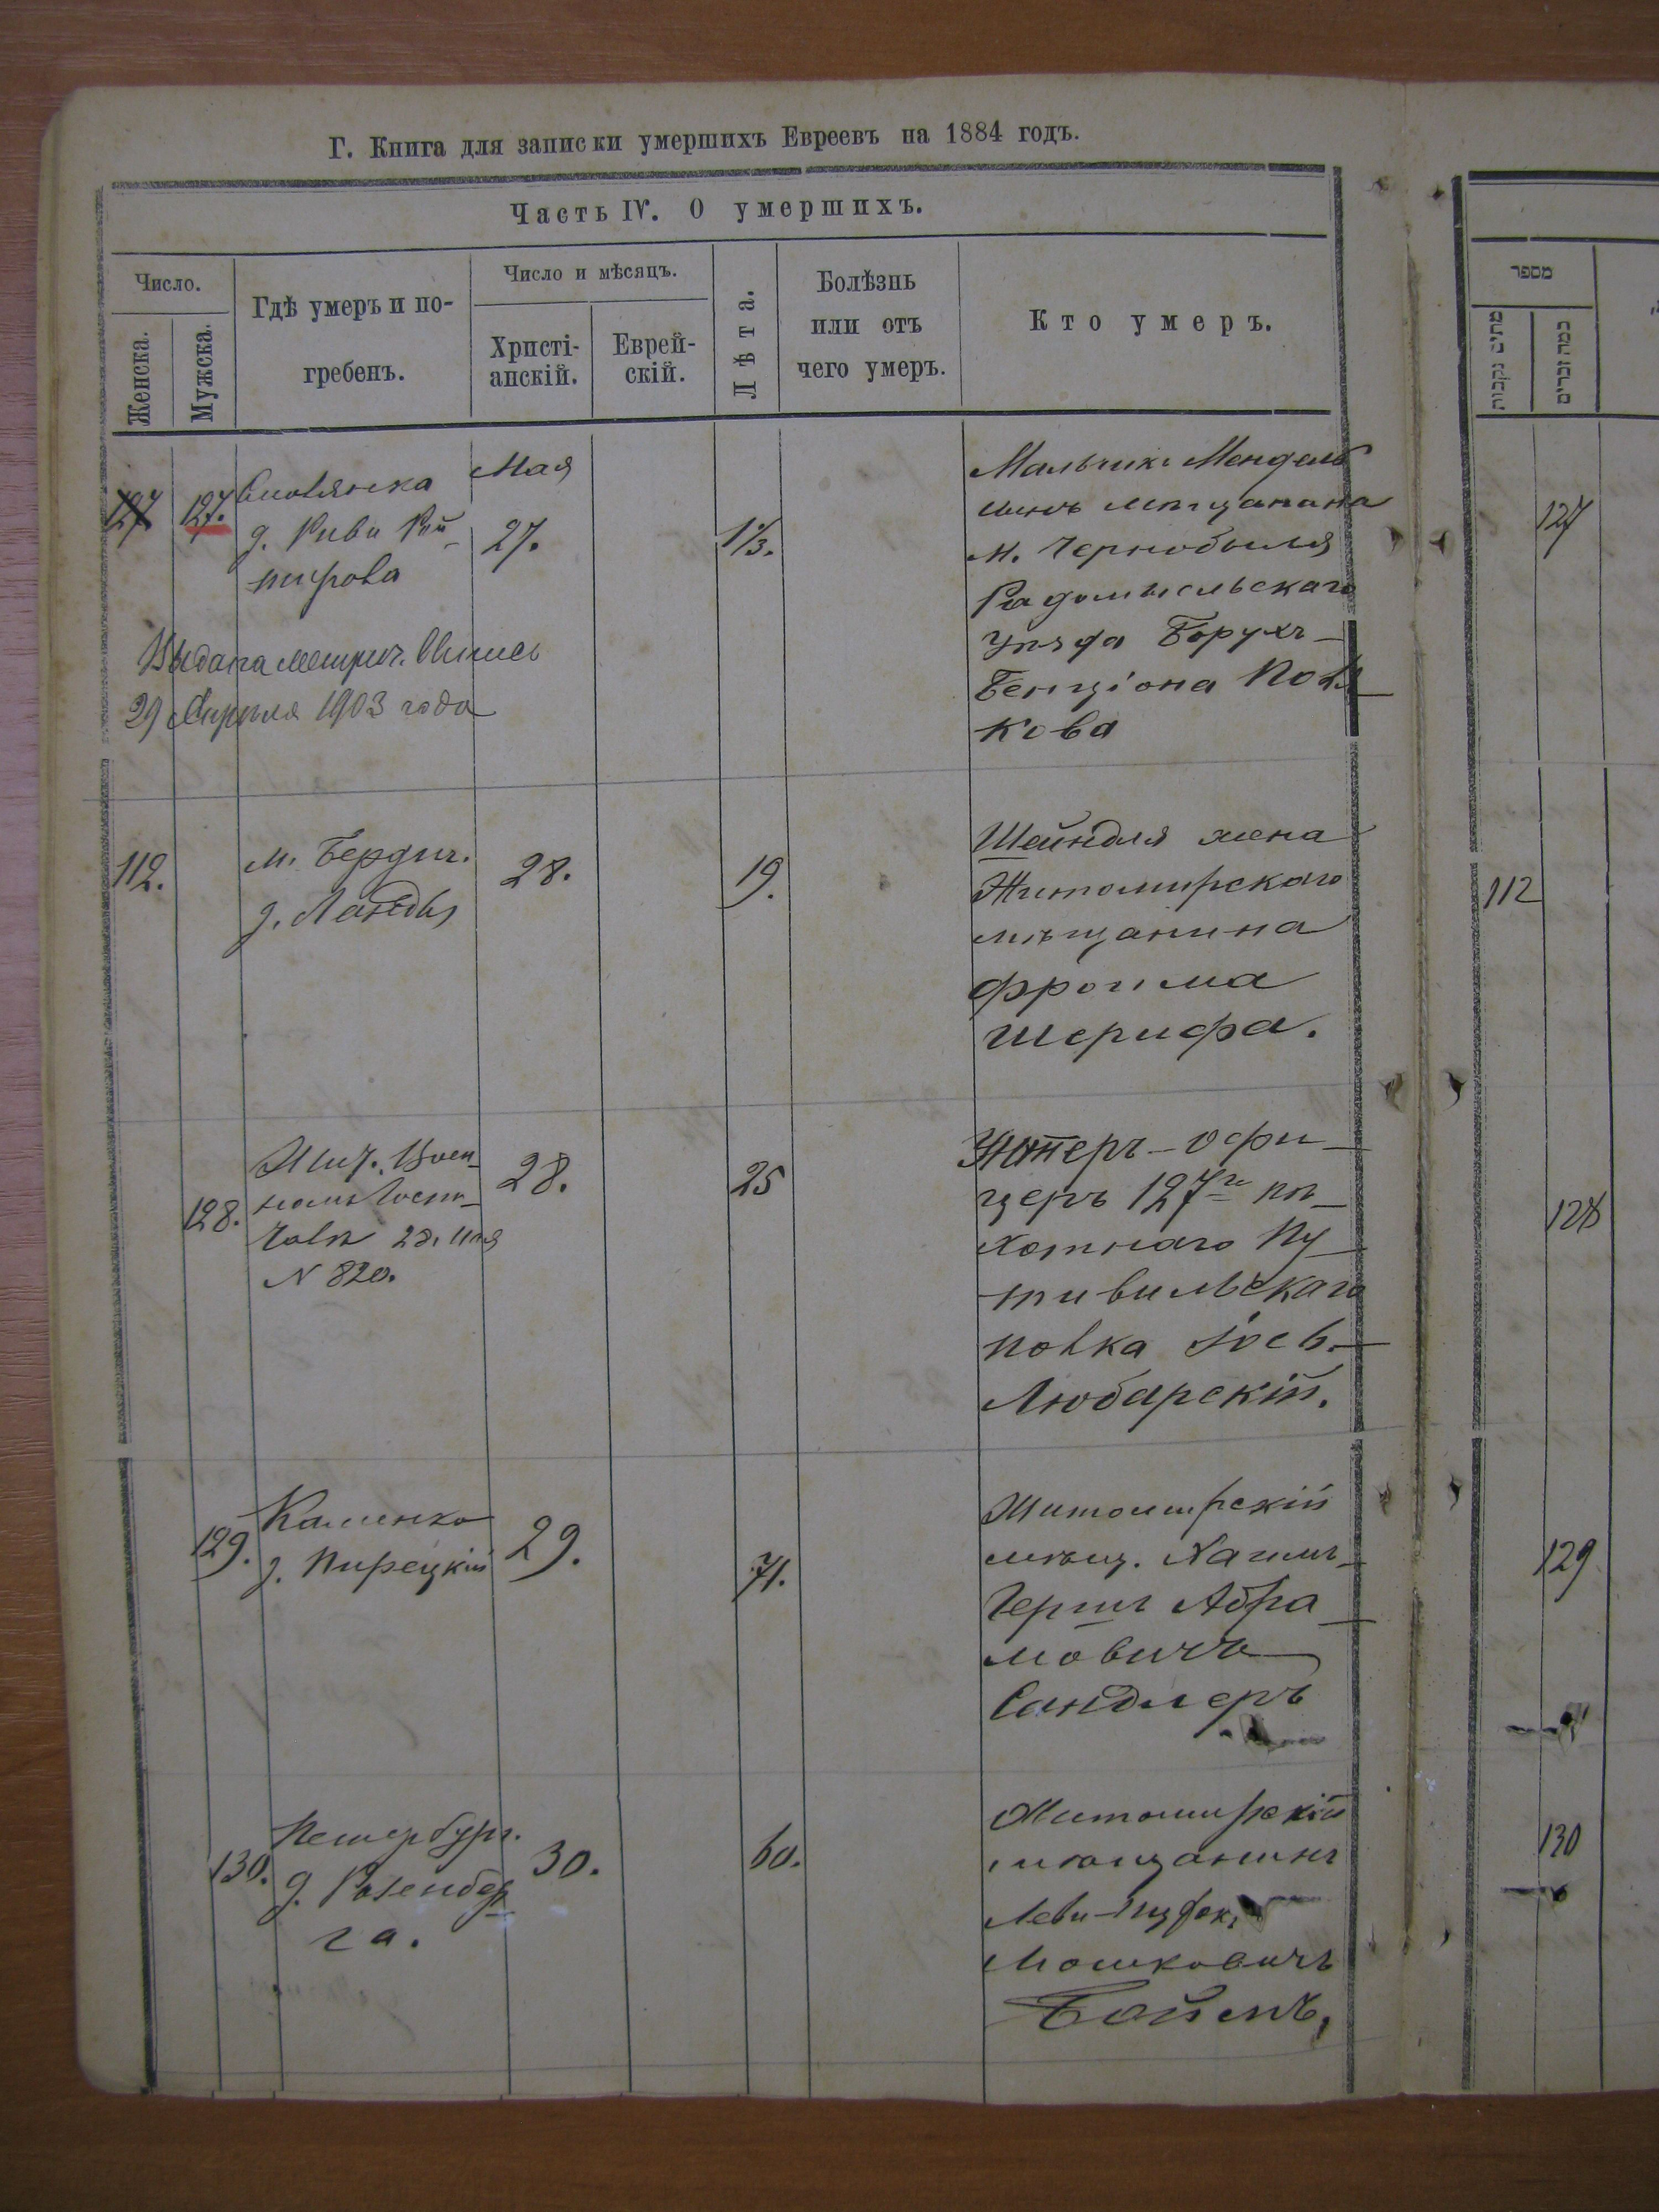 Г. Книга для записки умершихъ Евреевъ на 1884 годъ.
Часть IV. О умершихъ.
Число.
Женска.
Мужска.
Гдѣ умеръ и по-
гребенъ.
Число и мѣсяцъ.
Христі-
анскій.
Еврей-
скій.
Лѣта.
Болѣзнь
или отъ
чего умеръ.
Кто умеръ.
מספר
127
127.
д. Риви
Мая
27.
1⅓.
Мальчикъ Мендель
сынъ мѣщанина
м. Чернобыля
Радомысльскаго
уѣзда Борухъ-
Бенціона Поля
кова
Выдана метрич. выпись
29 Апрѣля 1903 года
127
112.
м. Бердич.
д. Ланды
28.
19.
Шейндля жена
Житомирскаго
мѣщанина
Фроима
Шерифа.
112
128.
Жит. Воен-
28. Мая
N 820.
28.
25
Унтеръ-офи-
церъ 127го пѣ-
хотнаго Пу-
тивильскаго
полка Іось-
Любарскій.
128
129.
Каменка
д. Пирецкій
29.
71.
Житомирскій
мѣщ. Хаимъ-
Гершъ Абра-
мовичъ
Сандлеръ
129
130.
Петербург.
д. Розенбер-
га.
30.
60.
Житомирскій
мѣщанинъ
Мошковичъ
130